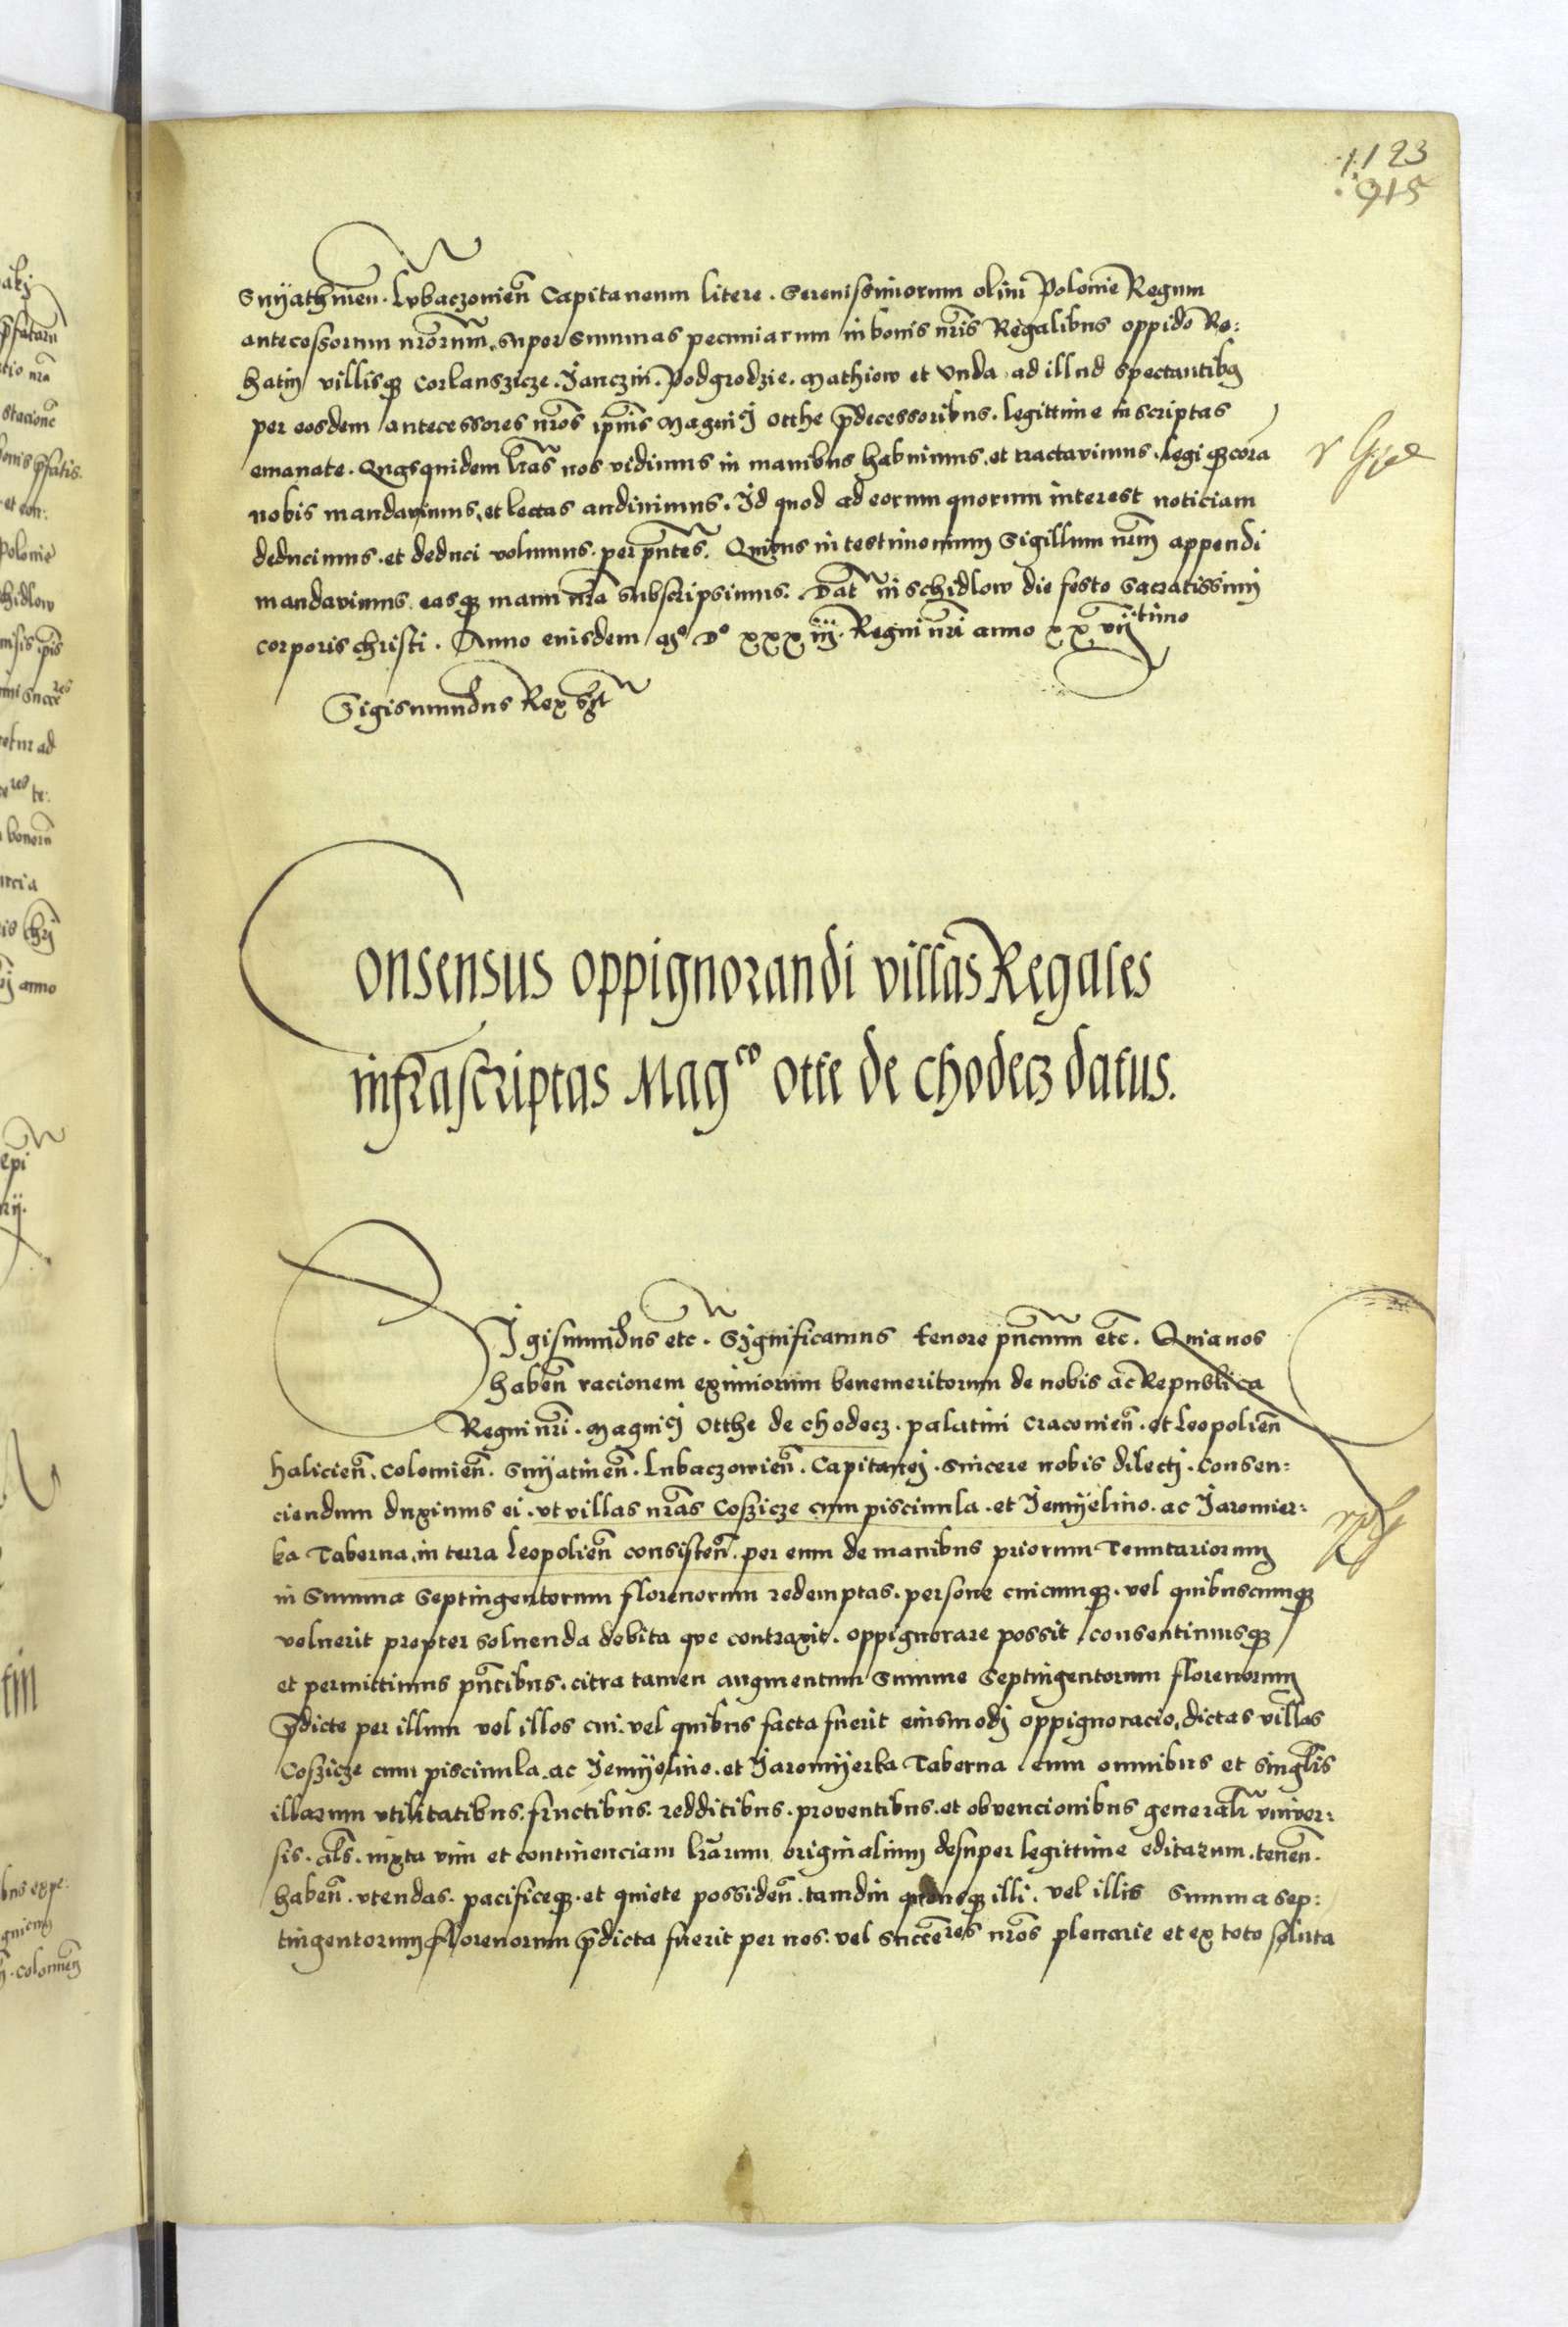 1123
915
Snyathmen̄. Lubaczowien̄ Capitaneum litere. Serenissimorum olim Polonie Regum
antecessorum nr̄orum, super summas pecuniarum in bonis nr̄is Regalibus oppido Ro:
hatin villisq3 Corlanszicze. Janczin. Podgrodzie. Mathiow et Unda ad illud spectantibq
per eosdem antecessores nr̄os ip̄ius Magnici Otthe p̄decessoribus. legittime inscriptas
emanate. Quasquidem lr̄as nos vidimus in manibus habuimus. et tractavimus. Legiq3 corā
nobis mandavimus, et lectas audivimus. Id quod ad eorum quorum interest noticiam
deducimus. et deduci volumus. per p̄ntes. Quibus in testimonium Sigillum nr̄m appendi
mandavimus. easq3 manu nr̄a subscripsimus. Dat̄ in Schidlow die festo sacratissimi
corporis christi. Anno eiusdem Mo Do xxxiii. Regni nr̄i anno xxviitimo
Sigismundus Rex sst
Consensus oppignorandi villas Regales
infrascriptas Magco Otte de Chodecz datus.
Sigismundus etc. Significamus tenore pn̄cium etc. Quia nos
haben̄ racionem eximiorum benemeritorum de nobis ac Republica
Regni nr̄i. Magnici Otthe de Chodecz. palatini Cracovien̄. et Leopolien̄
Halicien̄. Colomien̄. Snyatinen̄. Lubaczowien̄. Capitanei. Sincere nobis dilecti. Consen:
ciendum duximus ei. ut villas nr̄as Coszicze cum piscinula. et Jemyelino. ac Jaromier:
ka Taberna, in terra Leopolien̄ consisten̄. per eum de manibus priorum Tenutariorum
in Summa Septingentorum florenorum redemptas. persone cuicumq3. vel quibuscumq3
voluerit propter solvenda debita que contraxit. oppignorare possit. consentimusq3
et permittimus pn̄tibus. citra tamen augmentum Summe Septingentorum florenorum
p̄dicte per illum vel illos cui. vel quibus facta fuerit eiusmodi oppignoracio, dictas villas
Coszicze cum piscinula. ac Jemyelino. et Jaromyerka Taberna. cum omnibus et singl̄is
illarum utilitatibus. fructibus. redditibus. proventibus. et obvencionibus generalr̄ univer:
sis. als̄. iuxta vim et continenciam lr̄arum originalium desuper legittime editarum. tenen̄.
haben̄. utendas. pacificeq3. et quiete possiden̄. tamdiu quousq3 illi. vel illis Summa sep:
tingentorum florenorum p̄dicta fuerit per nos. vel succeres nr̄os plenarie et ex toto soluta